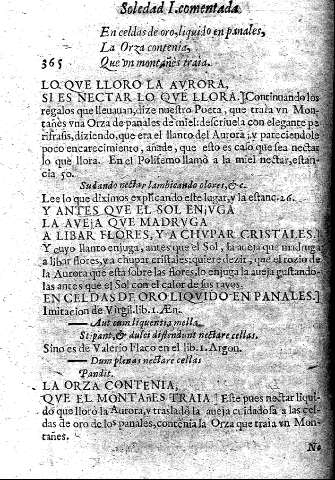 Soledad I. comentada
En celdas de oro, liquido en panales,
La Orza contenia,
365 Que vn montañes traia.
LO QVE LLORO LA AVRORA,
SI ES NECTAR LO QVE LLORA.] Continuando los
regalos que lleuauan, dize nuestro Poeta, que traia vn Mon-
tañes vna Orza de panales de miel: descriuela con elegante pe
rifrasis, diziendo, que era el llanto del Aurora; y pareciendole
poco encarecimiento, añade, que esto es caso que sea nectar
lo que llora. En el Polifemo llamò a la miel nectar, estan-
cia 50.
Sudando nectar lambicando olores, &c.
Lee lo que diximos explicando este lugar, y la estanc. 26.
Y ANTES QVE EL SOL ENJVGA
LA AVEJA QVE MADRVGA
A LIBAR FLORES, Y A CHVPAR CRISTALES.]
Y cuyo llanto enjuga, antes que el Sol, la aueja que madruga
a libar flores, y a chupar cristales: quiere dezir, que el rozio de
la Aurora que està sobre las flores, lo enjuga la aueja gustando-
las antes que el Sol con el calor de sus rayos.
EN CELDAS DE ORO LIQVIDO EN PANALES.]
Imitacion de Virgil. lib. 1. Æn.
— Aut cum liquentia mella
Stipant, & dulci distendunt nectare cellas.
Sino es de Valerio Flaco en el lib. 1. Argon.
— Dum plenas nectare cellas
Pandit.
LA ORZA CONTENIA,
QVE EL MONTAñES TRAIA. Este pues nectar liqui-
do que llorò la Aurora, y trasladò la aueja cuidadosa a las cel-
das de oro de los panales, contenia la Orza que traia vn Mon-
tañes.
No